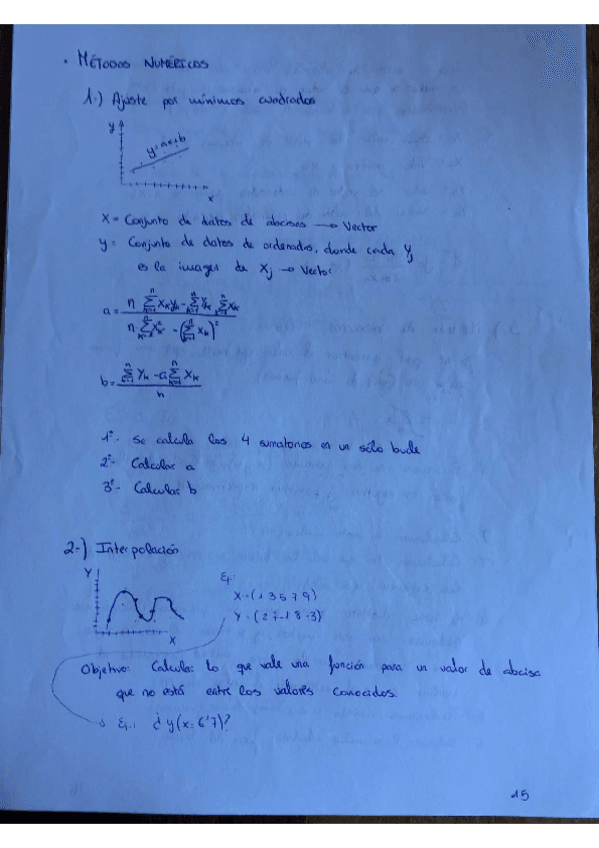 · MÉTODOS NUMÉRICOS
1.) Ajuste por mínimos cuadrados
y
y=ax+b
x
X = Conjunto de datos de abcisas → Vector
y = Conjunto de datos de ordenadas, donde cada Yj
es la imagen de Xj → Vector
a = \frac{n \sum_{k=1}^{n} X_k Y_k - \sum_{k=1}^{n} Y_k \sum_{k=1}^{n} X_k}{n \sum_{k=1}^{n} X_k^2 - (\sum_{k=1}^{n} X_k)^2}
b = \frac{\sum_{k=1}^{n} Y_k - a \sum_{k=1}^{n} X_k}{n}
1º- Se calcula los 4 sumatorios en un sólo bucle
2º- Calcular a
3º- Calcular b
2-) Interpolación
Y
X
Ej:
X = (1 3 5 7 9)
Y = (2 7 -1 8 -3)
Objetivo: Calcular lo que vale una función para un valor de abcisa
que no está entre los valores conocidos.
→ Ej.: ¿y(x=6'7)?
15